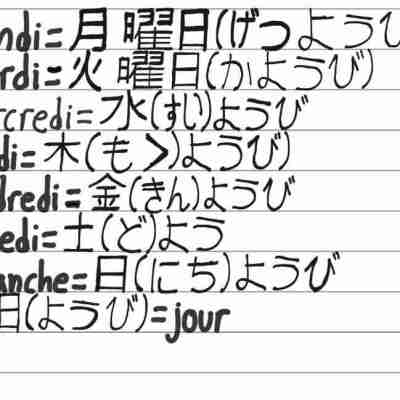 ndi=月曜日(げつようび
rdi=火曜日(かようび)
rcredi=水(すい)ようび
di=木(も>)ようび)
dredi=金(きん)ようび
edi=土(ど)よう
anche=日(にち)ようび
日(ようび)=jour